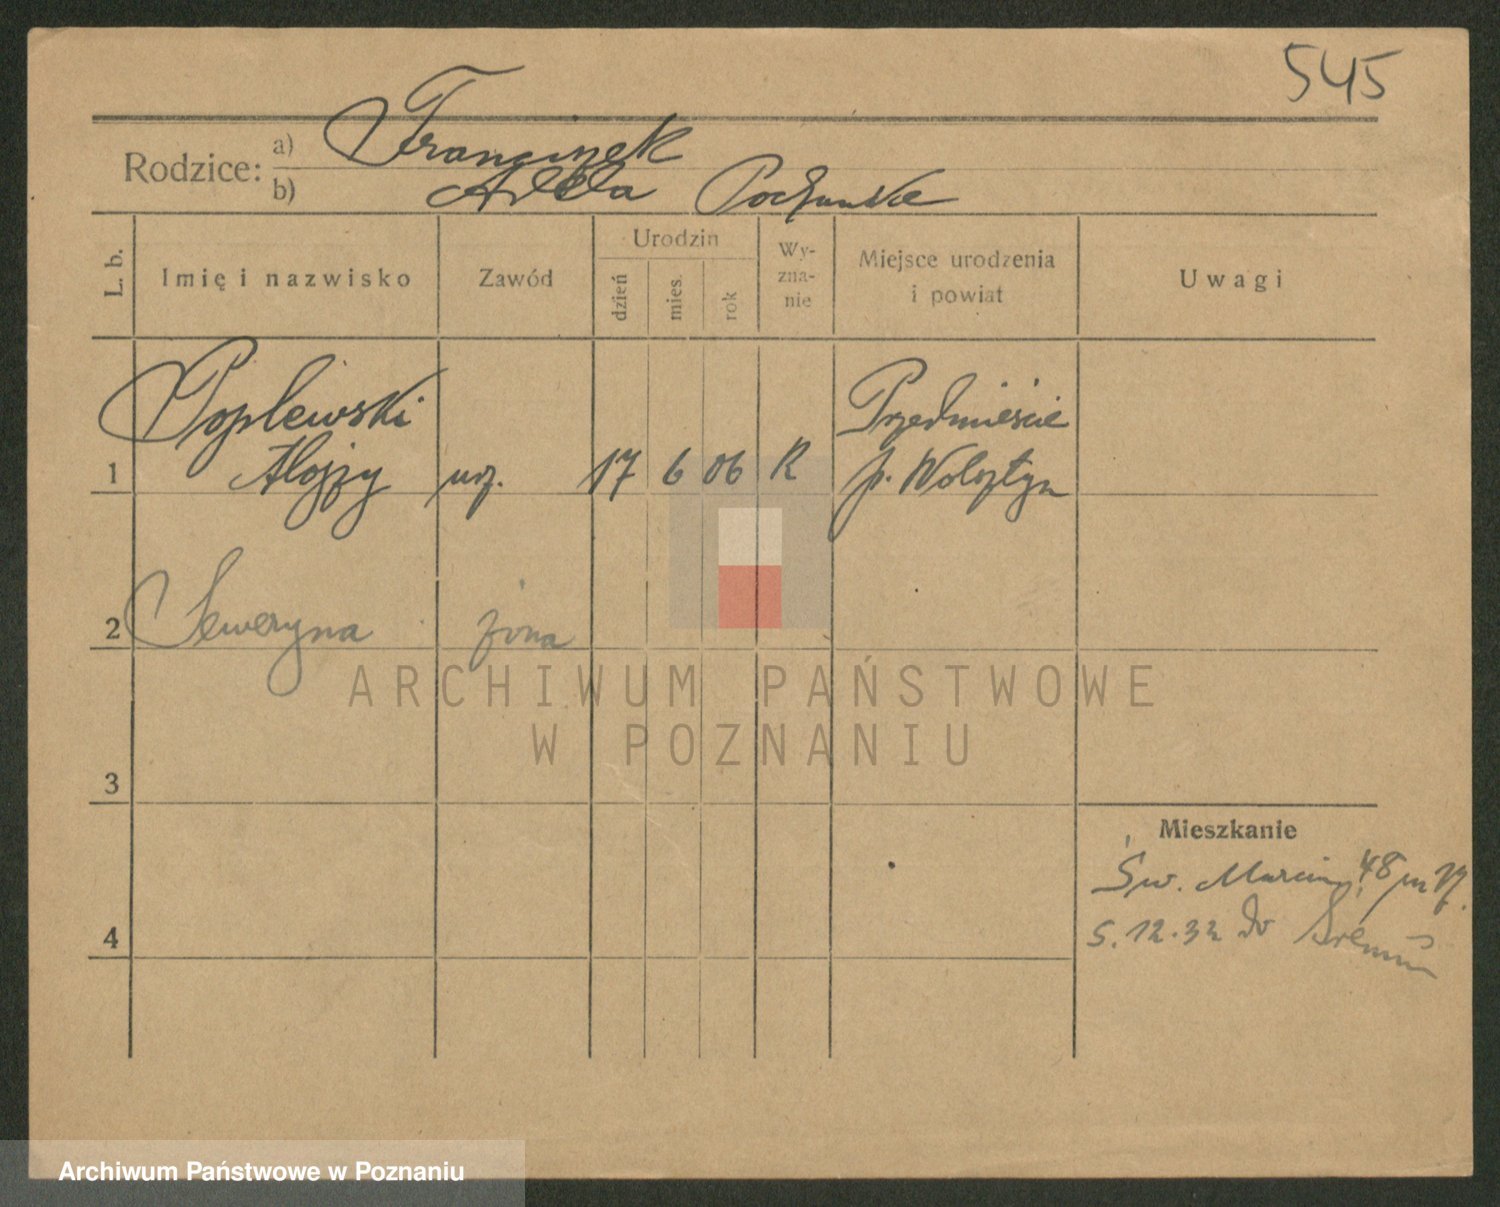 545
Rodzice: a) Franciszek
b) Adela
L. b.
Imię i nazwisko
Zawód
Urodzin
dzień
mies.
rok
Wy-
zna-
nie
Miejsce urodzenia
i powiat
Uwagi
Poplewski
Przedmieście
1 Alojzy urz. 17 6 06 R p. Wolsztyn
2 Seweryna żona
ARCHIWUM PAŃSTWOWE
W POZNANIU
3
Mieszkanie
Św. Marcin 48 m
4
5.12.32 do Śremu
Archiwum Państwowe w Poznaniu